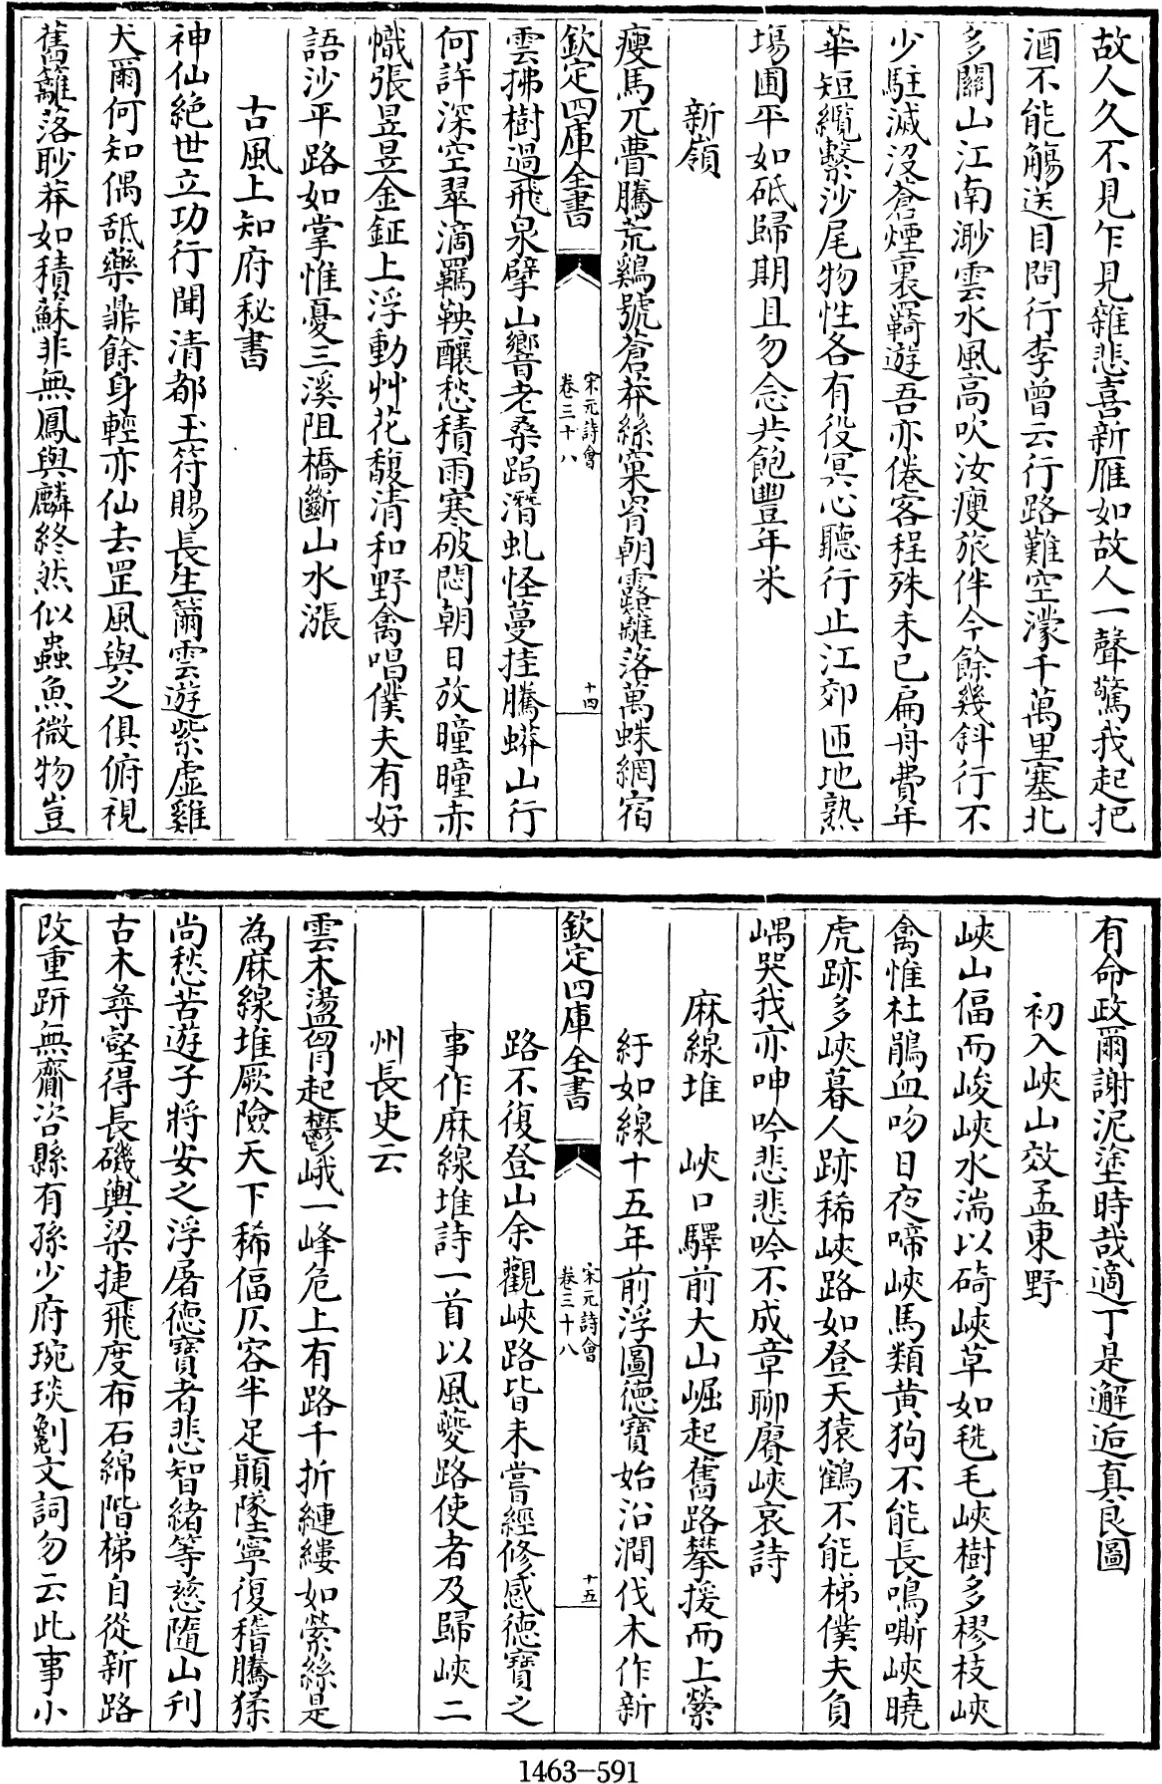 故人久不見乍見雜悲喜新雁如故人一聲驚我起把
酒不能觴送目問行李曾云行路難空濛千萬里塞北
多關山江南渺雲水風高吹汝瘦旅伴今餘幾斜行不
少駐滅没蒼煙裏羇遊吾亦倦客程殊未已扁舟費年
華短纜繫沙尾物性各有役冥心聽行止江郊匝地熟
塲圃平如砥歸期且勿念共飽豐年米
新嶺
瘦馬兀瞢騰荒鷄號蒼莽絲窠罥朝露離落萬蛛網宿
欽定四庫全書
宋元詩會
卷三十八
十四
雲拂樹過飛泉擘山響老桑跼潛虬怪蔓挂騰蟒山行
何許深空翠滴羈鞅釀愁積雨寒破悶朝日放曈曈赤
幟張昱昱金鉦上浮動艸花馥清和野禽唱僕夫有好
語沙平路如掌惟憂三溪阻橋斷山水漲
古風上知府秘書
神仙絶世立功行聞清都玉符賜長生籋雲遊紫虛雞
犬爾何知偶舐藥鼎餘身輕亦仙去罡風與之俱俯視
舊籬落眇莽如積蘇非無鳳與麟終然似蟲魚微物豈
有命政爾謝泥塗時哉適丁是邂逅真良圖
初入峽山效孟東野
峽山偪而峻峽水湍以碕峽草如毨毛峽樹多樛枝峽
禽惟杜鵑血吻日夜啼峽馬類黄狗不能長鳴嘶峽曉
虎跡多峽暮人跡稀峽路如登天猿鶴不能梯僕夫負
嵎哭我亦呻吟悲悲吟不成章聊賡峽哀詩
麻線堆 峽口驛前大山崛起舊路攀援而上縈
紆如線十五年前浮圖德寶始沿澗伐木作新
欽定四庫全書
宋元詩會
卷三十八
十五
路不復登山余觀峽路皆未嘗經修感德寶之
事作麻線堆詩一首以風夔路使者及歸峽二
州長吏云
雲木盪胷起鬱峨一峰危上有路千折縺縷如縈絲是
為麻線堆厥險天下稀偪仄容半足顛墜寧復稽騰猱
尚愁苦遊子將安之浮屠德寶者悲智緒等慈隨山刋
古木尋壑得長磯輿梁捷飛度布石綿階梯自從新路
改重趼無齎咨縣有孫少府琬琰劖文詞勿云此事小
1463-591